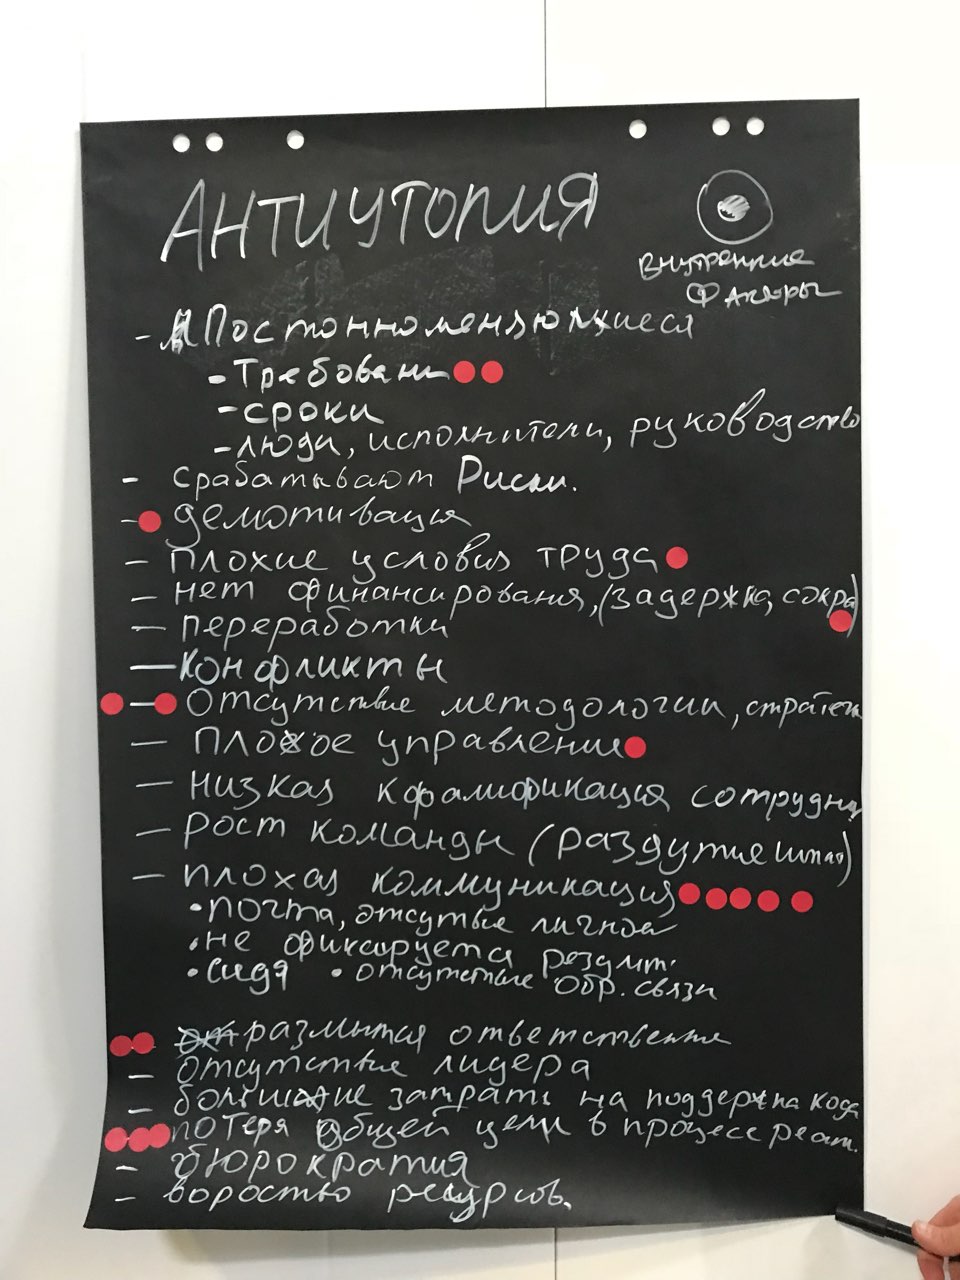 АНТИУТОПИЯ
Внутренние
факторы
- Постоянно меняющиеся
- Требован
- сроки
- люди, исполнители, руководство
- срабатывают Риски.
- демотивация
- плохие условия труда
- нет финансирования, (задержка, сокра)
- переработки
- конфликты
- отсутствие методологии, стратеги
- плохое управление
- низкая кфалификация сотрудни
- рост команды (раздутие штат)
- плохая коммуникация
• почта, отсутвие личной
• не фиксируется резулт.
• сидя • отсутствие обр. связи
размытая ответственн
- отсутствие лидера
- большие затраты на поддержка кода
потеря общей цели в процессе реал.
- бюрократия
- вороство ресурсов.